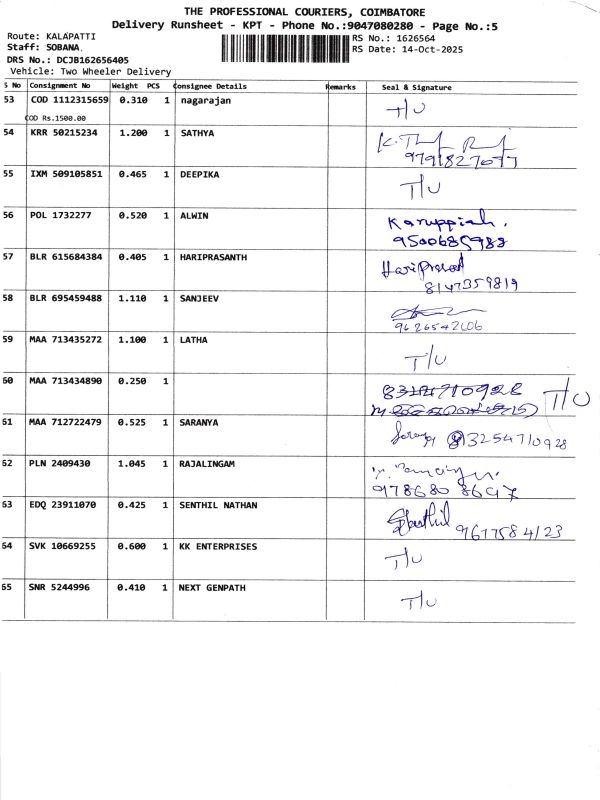 THE PROFESSIONAL COURIERS, COIMBATORE
Delivery Runsheet - KPT - Phone No.:9047080280 - Page No.:5
Route: KALAPATTI RS No.: 1626564
Staff: SOBANA. RS Date: 14-Oct-2025
DRS No.: DCJB162656405
Vehicle: Two Wheeler Delivery
S No Consignment No Weight PCS Consignee Details Remarks Seal & Signature
53 COD 1112315659 0.310 1 nagarajan T/U
COD Rs.1500.00
54 KRR 50215234 1.200 1 SATHYA
9791827077
55 IXM 509105851 0.465 1 DEEPIKA T/U
56 POL 1732277 0.520 1 ALWIN Karuppiah.
9500685983
57 BLR 615684384 0.405 1 HARIPRASANTH HariPrasad
8147359819
58 BLR 695459488 1.110 1 SANJEEV
9626542606
59 MAA 713435272 1.100 1 LATHA T/U
60 MAA 713434890 0.250 1 T/U
61 MAA 712722479 0.525 1 SARANYA 83254710928
62 PLN 2409430 1.045 1 RAJALINGAM
978680 8697
63 EDQ 23911070 0.425 1 SENTHIL NATHAN Senthil 9677584123
64 SVK 10669255 0.600 1 KK ENTERPRISES T/U
65 SNR 5244996 0.410 1 NEXT GENPATH T/U